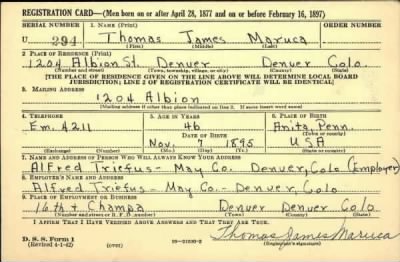 REGISTRATION CARD—(Men born on or after April 28, 1877 and on or before February 16, 1897)
SERIAL NUMBER 1. NAME (Print)
U 294 Thomas James Maruca
(First) (Middle) (Last)
2. PLACE OF RESIDENCE (Print)
1204 Albion St. Denver Denver Colo.
(Number and street) (Town, township, village, or city) (County) (State)
[THE PLACE OF RESIDENCE GIVEN ON THE LINE ABOVE WILL DETERMINE LOCAL BOARD
JURISDICTION; LINE 2 OF REGISTRATION CERTIFICATE WILL BE IDENTICAL]
3. MAILING ADDRESS
1204 Albion
[Mailing address if other than place indicated on line 2. If same insert word same]
4. TELEPHONE 5. AGE IN YEARS 6. PLACE OF BIRTH
Em. 4211 46 Anita, Penn.
DATE OF BIRTH (Town or county)
Nov. 7 1895 USA
(Exchange) (Number) (Mo.) (Day) (Yr.) (State or country)
7. NAME AND ADDRESS OF PERSON WHO WILL ALWAYS KNOW YOUR ADDRESS
Alfred Triefus - May Co. Denver, Colo (Employer)
8. EMPLOYER'S NAME AND ADDRESS
Alfred Triefus - May Co. - Denver, Colo
9. PLACE OF EMPLOYMENT OR BUSINESS
16th & Champa Denver Denver Colo
(Number and street or R. F. D. number) (Town) (County) (State)
I AFFIRM THAT I HAVE VERIFIED ABOVE ANSWERS AND THAT THEY ARE TRUE.
D. S. S. Form 1
(Revised 4-1-42) (over) Thomas James Maruca
(Registrant's signature)